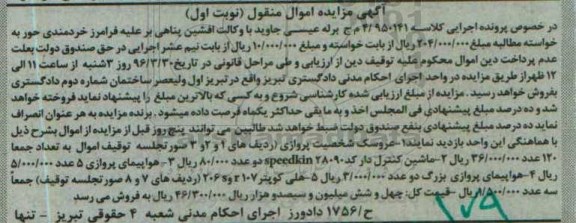 آگهی مزایده اموال منقول (نوبت اول)
در خصوص پرونده اجرایی کلاسه ۴/۹۵۰۱۴۱ م ج برله عیسی جاوید با وکالت افشین پناهی بر علیه فرامرز خردمندی حور به
خواسته مطالبه مبلغ ۲۰۴/۰۰۰/۰۰۰ ریال از بابت خواسته و مبلغ ۱۰/۰۰۰/۰۰۰ ریال از بابت نیم عشر اجرایی در حق صندوق دولت بعلت
عدم پرداخت دین اموال محکوم علیه توقیف دین از ارزیابی و طی مراحل قانونی در تاریخ ۹۶/۳/۳۰ روز ۳شنبه از ساعت ۱۱ الی
۱۲ ظهر از طریق مزایده در واحد اجرای احکام مدنی دادگستری تبریز واقع در تبریز اول ولیعصر ساختمان شماره دوم دادگستری
بفروش خواهد رسید. مزایده از مبلغ ارزیابی شده کارشناسی شروع و به کسی که بالاترین مبلغ را پیشنهاد نماید فروخته خواهد
شد و ده درصد مبلغ پیشنهادی فی المجلس اخذ و به ما بقی حداکثر یکماه فرصت داده میشود. برنده مزایده به هر عنوان انصراف
نماید ده درصد مبلغ پیشنهادی بنفع صندوق دولت ضبط خواهد شد طالبین می توانند پنج روز قبل از مزایده از اموال بشرح ذیل
با هماهنگی این واحد بازدید نمایند: ۱-عروسک شخصیت پروازی (ردیف های ۱ و ۲ و ۳ صورتجلسه توقیف اموال به تعداد جمعا
۱۲۰ عدد ۳۶/۰۰۰/۰۰۰ ریال ۲-ماشین کنترل دار کد ۲۸۰۹۰ speedkin دو عدد ۸۰/۰۰۰ ریال ۳-هواپیمای پروازی ۵ عدد ۵/۰۰۰/۰۰۰
ریال ۴-هواپیمای پروازی بزرگ دو عدد ۳/۰۰۰/۰۰۰ ریال ۵-هلی کوپتر ۲۱۰۷ و ۲۰۶ (ردیف های ۷ و ۸ صورتجلسه توقیف) جمعاً
سه عدد ۱/۵۰۰/۰۰۰ ریال -قیمت کل: چهل و شش میلیون و سیصدو هزار ریال ۴۶/۳۰۰/۰۰۰ ریال به فروش می رسد
ح/۱۷۵۶ دادورز اجرای احکام مدنی شعبه ۴ حقوقی تبریز - تنها
۱۷۹